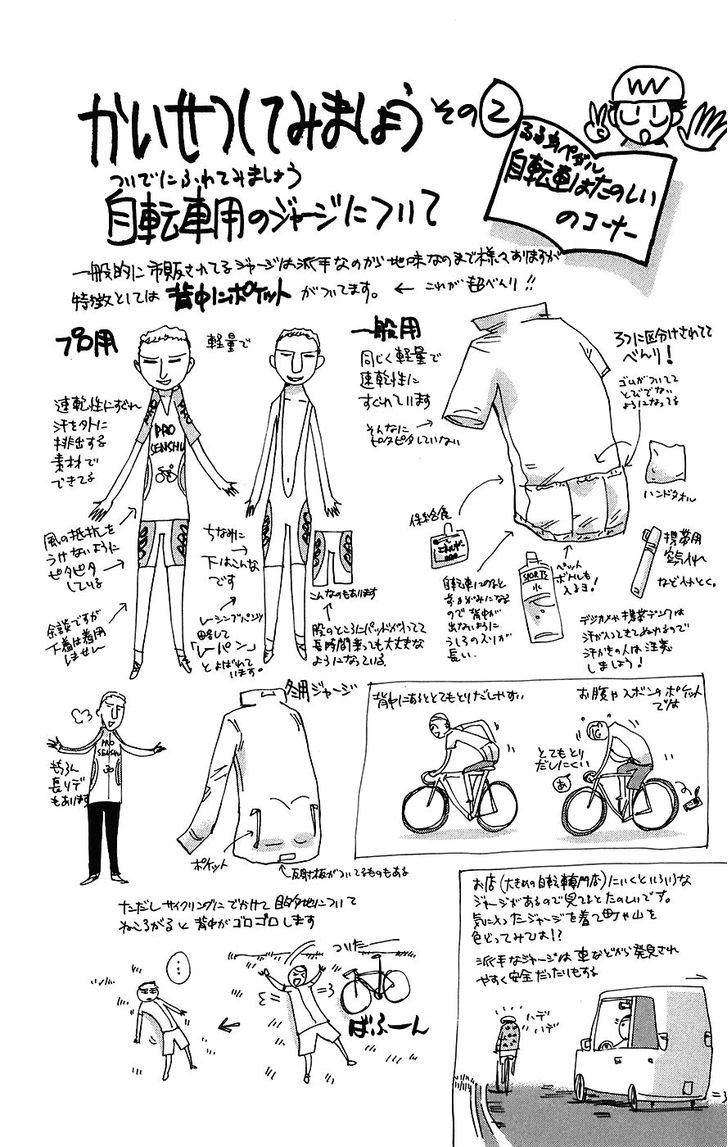 かいせつしてみましょう その②
るるるペダル
自転車はたのしい
のコーナー
ついでにふれてみましょう
自転車用のジャージについて
一般的に市販されてるジャージは派手なのから地味なのまで様々ありますが
特徴としては 背中にポケット がついてます。 ← これが超べんり!!
プロ用
軽量で
速乾性にすぐれ
汗を外に
排出する
素材で
できてる
PRO
SENSHU
風の抵抗を
うけないように
ピタピタ
している
余談ですが
下着は着用
しません
ちなみに
下はこんな
です
レーシングパンツ
略して
「レーパン」
とよばれて
います。
こんなのもあります
股のところにパッドがついてて
長時間乗っても大丈夫な
ようになっている
一般用
同じく軽量で
速乾性に
すぐれています
そんなに
ピタピタしていない
3つに区分けされてて
べんり!
ゴムがついてて
とびでない
ようになってる
ハンドタオル
補給食
自転車にのると
前かがみになる
ので背中が
出ないように
うしろの入りが
長い
SPORTS
水
ペット
ボトルも
入るヨ!
携帯用
空気入れ
などetc.
デジカメや携帯デンワは
汗が入ってきてぬれるので
汗かきの人は注意
しましょう!
PRO
SENSHU
もちろん
長いデ
もあります
冬用ジャージ
ポケット
反射板がついてるものもある
背中にあるととてもとりだしやすい
お腹やズボンのポケット
では
とてもとり
だしにくい
あ
ただしサイクリングにでかけて目的地について
ねころがると背中がゴロゴロします
…
ついたー
ばふーん
お店(大きめの自転車専門店)にいくといろいろな
ジャージがあるので見てるとたのしいです。
気に入ったジャージを着て町や山を
色どってみては!?
派手なジャージは車などから発見され
やすく安全だったりもする
ハデ
ハデ